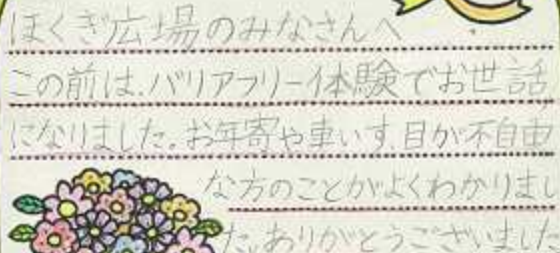 ほくぎ広場のみなさんへ
この前は、バリアフリー体験でお世話
になりました。お年寄や車いす、目が不自由
な方のことがよくわかりまし
た。ありがとうございました